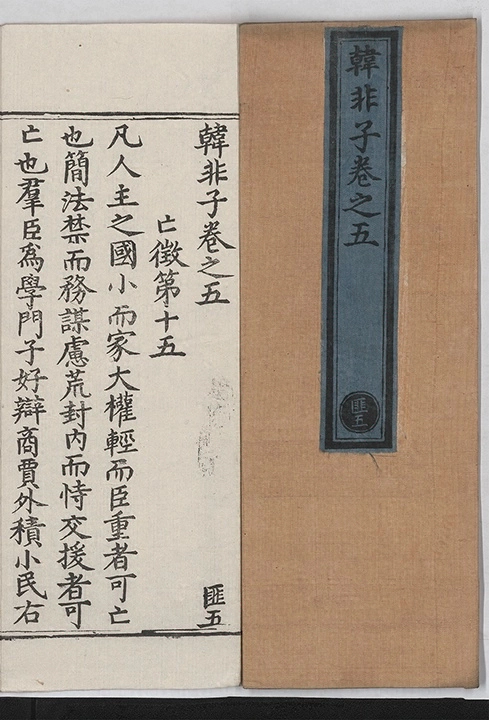 韓非子卷之五
匪五
韓非子卷之五
匪五
亡徵第十五
凡人主之國小而家大權輕而臣重者可亡
也簡法禁而務謀慮荒封內而恃交援者可
亡也羣臣為學門子好辯商賈外積小民右